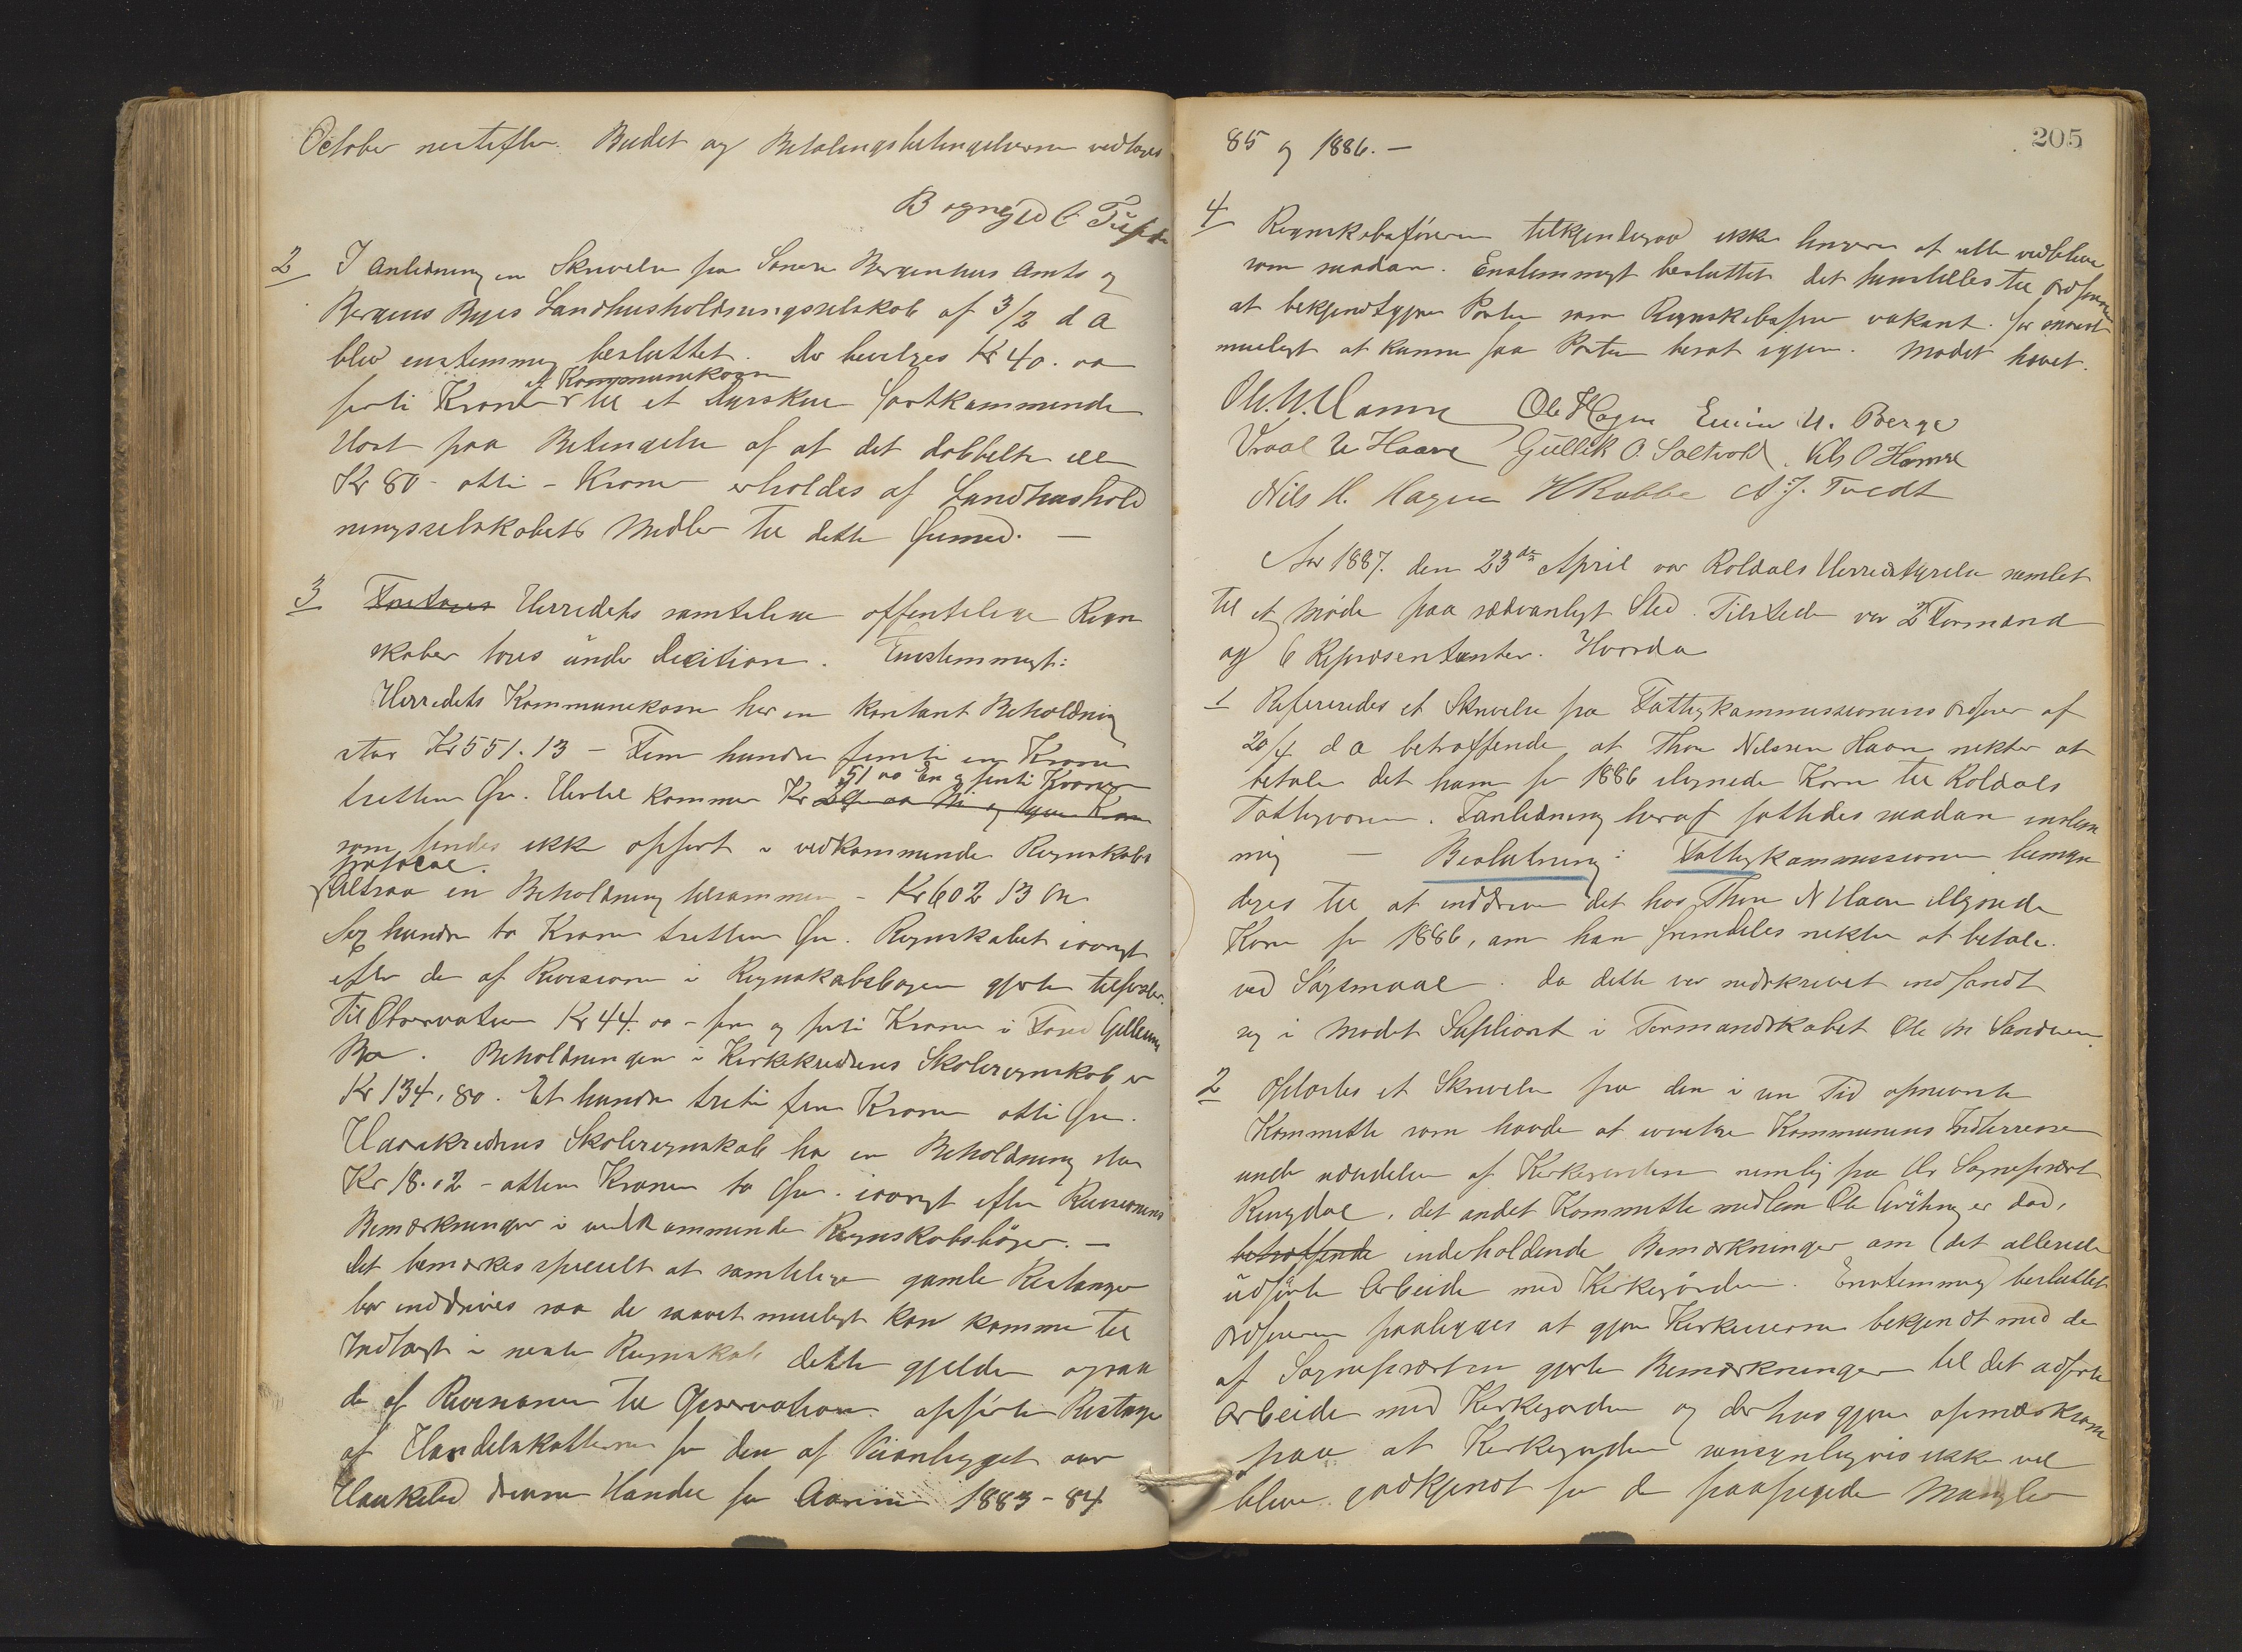 October nestefter. Budet og Betalingsbetingelserne vedtoges
2 I Anledning en Skrivelse fra Søndre Bergenhus Amts og
Bergens Byes Landhusholdningsselskab af 3/2 d a
blev enstemmig besluttet. Der bevilges Kr 40. oo
af Kommunekassen
førti Kroner til et Dyrskue forstkommende
Høst paa Betingelse af at det dobbelte
Kr 80 - otti - Kroner erholdes af Landhushold
ningsselskabets Midler til dette Øiemed. —
3 Foretoges Herredets samtelige offentelige Regn
skaber toges under Decition. Enstemmigt:
Herredets Kommunekasse har en kontant Beholdning
stor Kr 551.13 - Fem hundre femti en Kroner
51 oo En og femti Kroner
tretten Øre. Hertil kommer Kr
som findes ikke opført i vedkommende Regnskabs
protocol.
Altsaa en Beholdning tilsammen - Kr 602 13 Øre
Sex hundre to Kroner tretten Øre. Regnskabet iøvrigt
efter de af Revisionen i Regnskabsbogen gjorte tilførsler.
Til Observation Kr 44. oo - fire og førti Kroner i
Beholdningen i Kirkekredsens Skoleregnskab er
Kr 134,80. Et hundre treti fire Kroner otti Øre.
Haarekredsens Skoleregnskab har en Beholdning stor
Kr 18.02 - atten Kroner to Øre. iøvrigt efter Revisionens
Bemærkninger i vedkommende Regnskabsbøger. —
Det bemærkes specielt at samtelige gamle Restanger
bør inddrives saa de saavet mueligt kan komme til
Indtægt i neste Regnskab dette gjelder ogsaa
de af Revisionen til Observation opførte Restanger
af Handelskatterne for den af Veianlegget over
Haukelid drevne Handel for Aarene 1883-84
205
85 og 1886. —
4 Regnskabsføreren tilkjendegav ikke lengere at ville vedblive
som saadan. Enstemmigt besluttet det henstilles til Ordføreren
at bekjendtgjøre Posten som Regnskabsfører vakant. for snarest
mueligt at kunne faa Posten besat igjen. Mødet hævet.
Ole Hagen Ener N. Berge
Vraal U Haave Gullik O. Saltvold. Nils O Hamre
Nils H. Hagen H Rabbe N J. Tvedt
Aar 1887. den 23de April var Røldals Herredstyrelse samlet
til et møde paa sædvanligt Sted. Tilstede var 2 Formænd
og 6 Repræsentanter. Hvorda
1 Refereredes et Skrivelse fra Fattigkommissionens Ordfører af
20/4 d a betræffende at Thore Nilssen Haare nekter at
betale det ham for 1886 ilignede Korn til Røldals
Fattigvæsen. I anledning heraf fattedes saadan enstem
mig — Beslutning: Fattigkommissionen bemyn
diges til at inddrive det hos Thore N Haare ilignede
Korn for 1886, om han fremdeles nekter at betale.
ved Søgsmaal. da dette var nedskrevet indfandt
sig i Mødet Supliant i Formandskabet Ole M Sandven.
2 Opløstes et Skrivelse fra den i sin Tid opnævnte
Kommitte som havde at ivaretage Kommunens Indterresse
under udvidelsen af Kirkegarden nemlig fra Hr Sogneprest
Ringdal, det andet Kommitte medlem Ole Grøtning er død,
betræffende indeholdende Bemærkninger om det allerede
udførte Arbeide med Kirkegården. Enstemmig besluttet
Ordføreren paalegges at gjøre Kirkeeierne bekjendt med de
af Sognepresten gjorte Bemærkninger til det udførte
Arbeide med Kirkegarden og derhos gjøre opmærksom
paa at Kirkegarden sansynligvis ikke vil
blive godkjendt for de paapegede Mangler